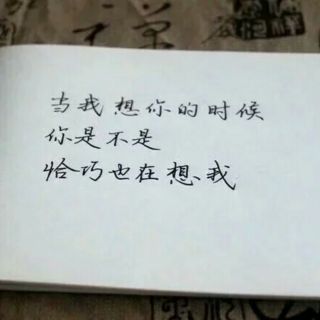 当我想你的时候
你是不是
恰巧也在想、我